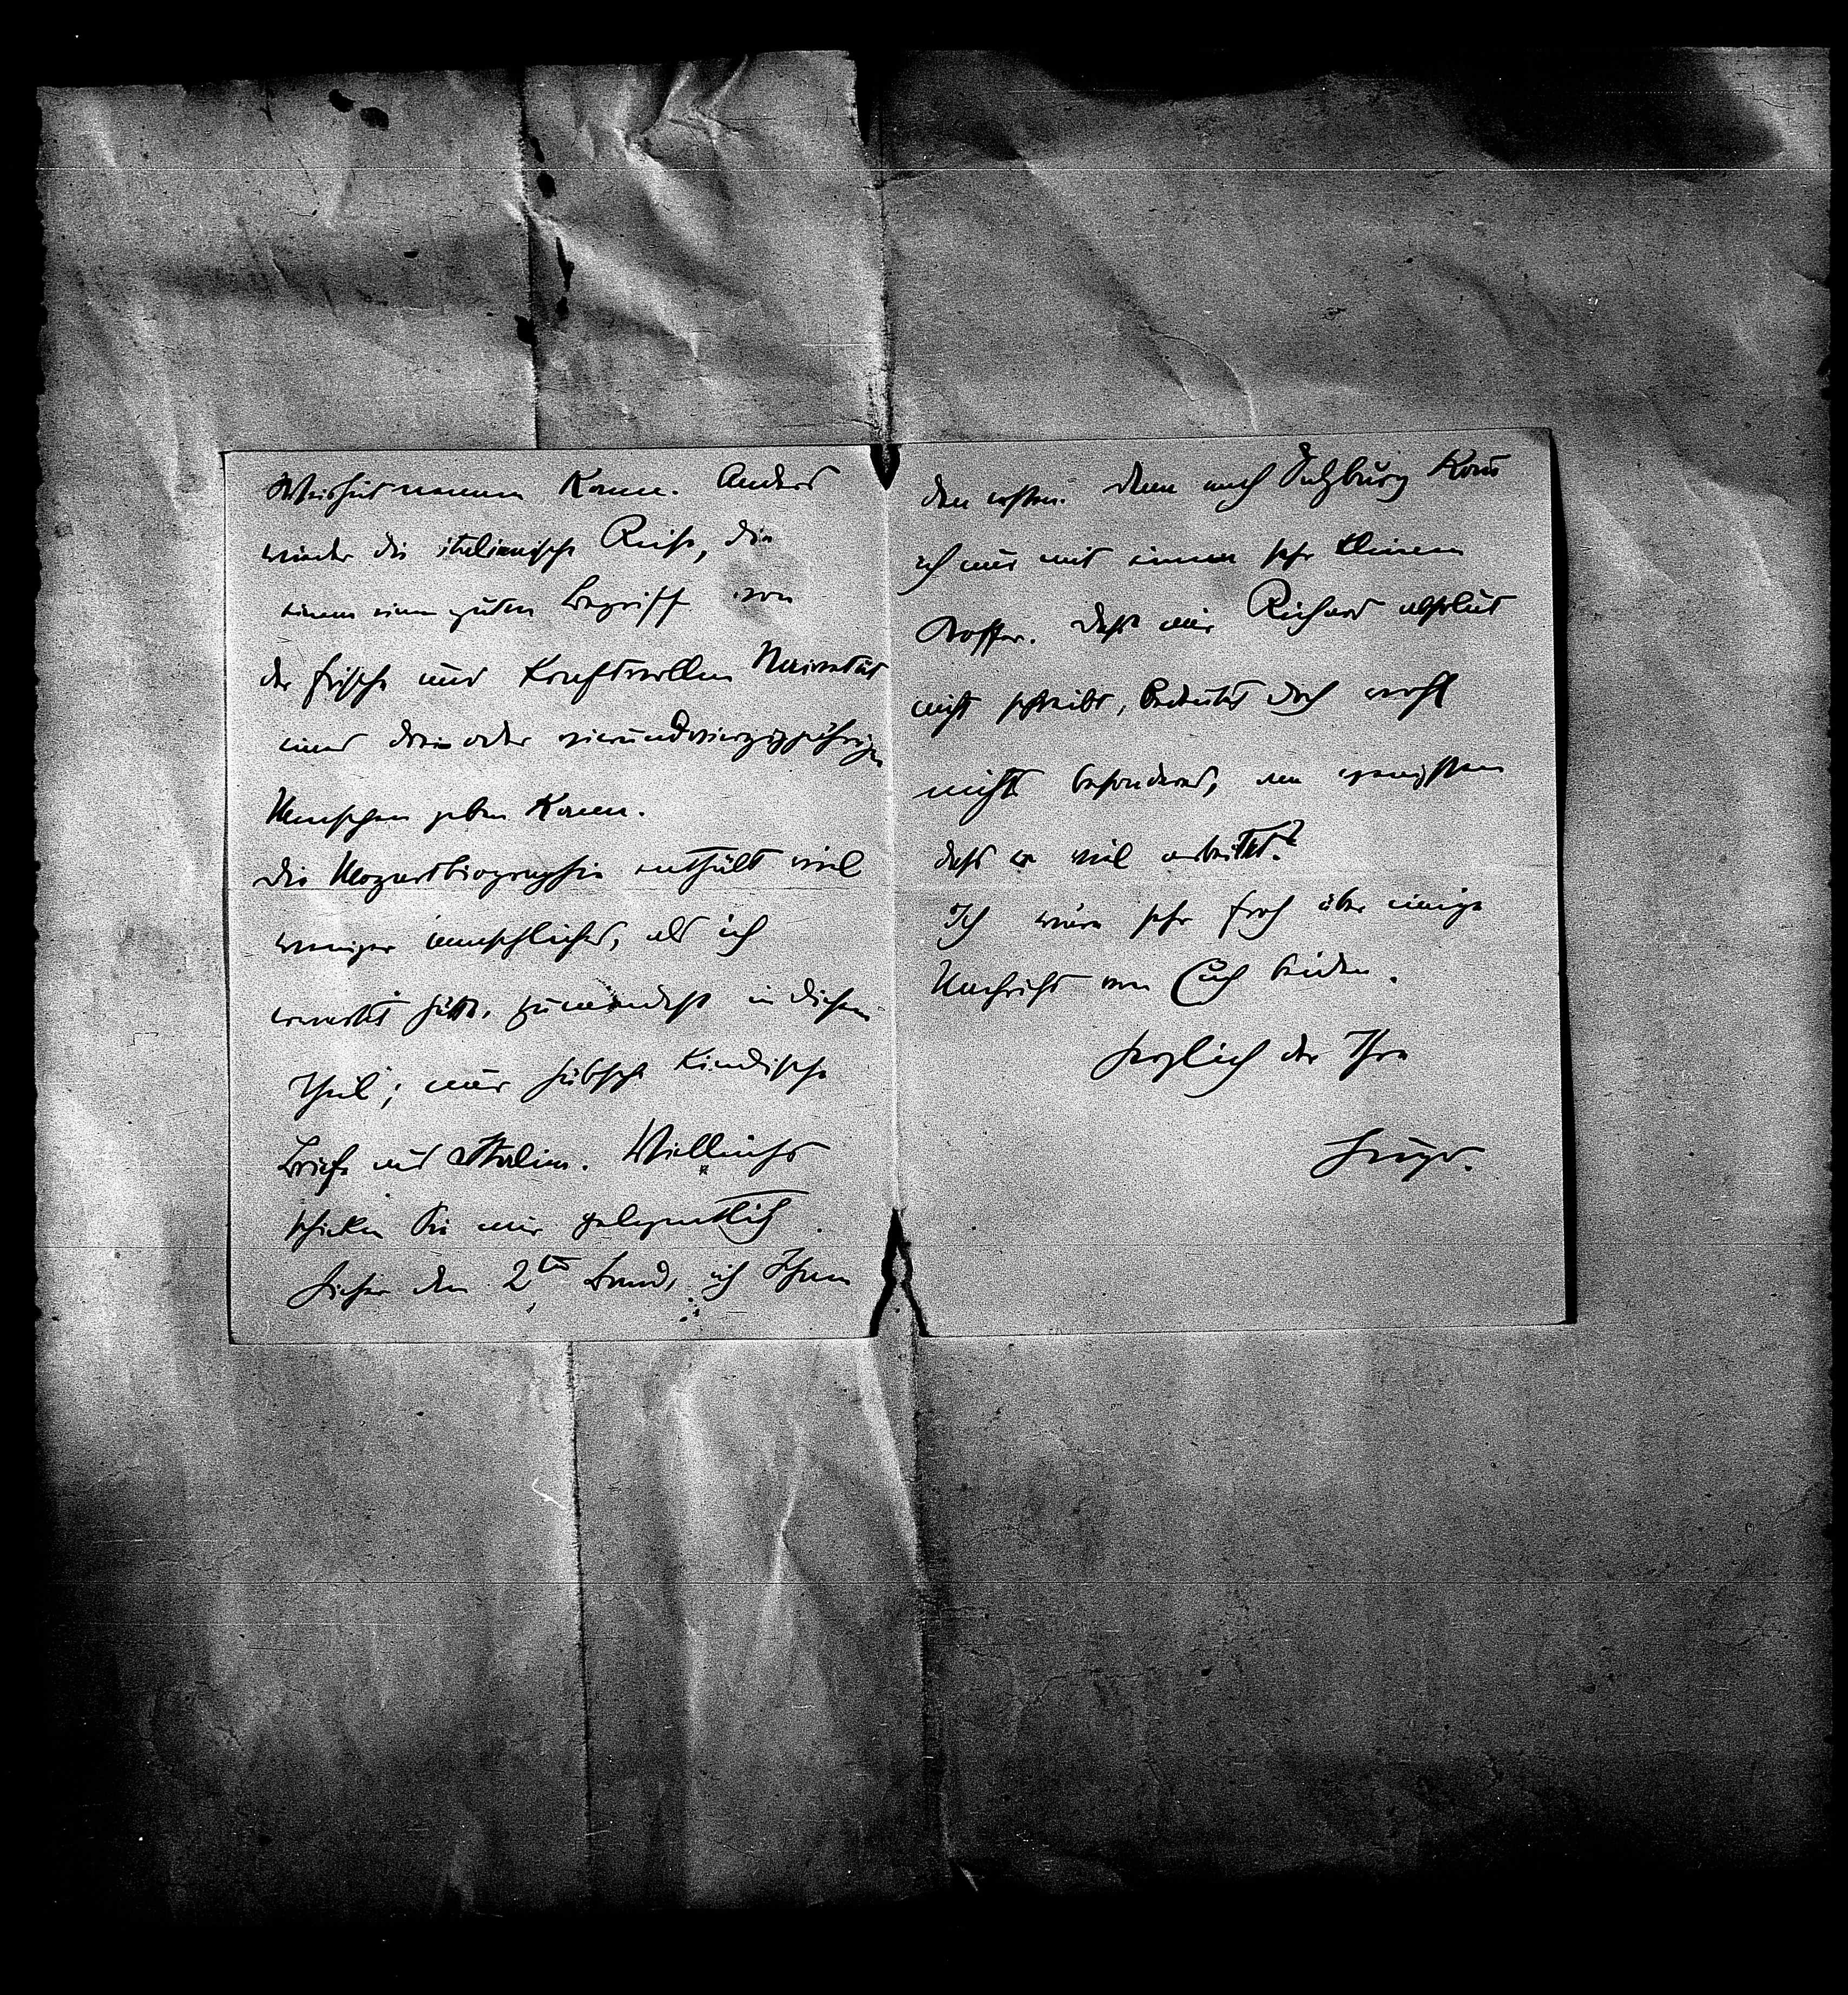 Weisheit nennen kann. Anders
wieder die italienische Reise, die
einem einen guten Begriff von
der frische und kraftvollen Naivetät
eines drei oder vierundvierzigjährigen
Menschen geben kann.
Die Mozartbiographie enthält viel
weniger menschliches, als ich
erwartet hätte, zumindest in diesem
Theil; nur hübsche kindische
Briefe aus Italien. Vielleicht
schicken Sie mir gelegentlich
hieher den 2ten Band, ich Ihnen
den ersten. Denn nach Salzburg kom
ich nur mit einem sehr kleinen
Koffer. Dass mir Richard absolut
nicht schreibt, bedeutet doch wohl
nichts besonderes, am wenigsten
dass er viel arbeitet?
Ich wäre sehr froh über einige
Nachricht von Euch beiden.
Herzlich der Ihre
Hugo.